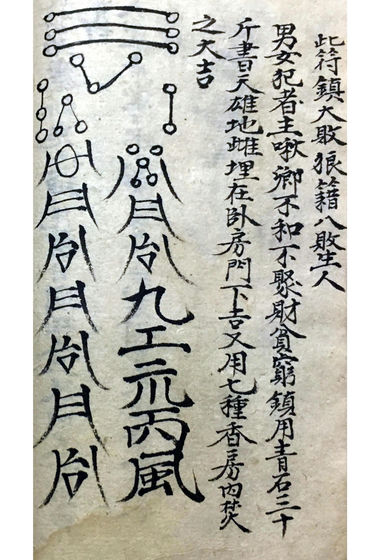 此符鎮大敗狼籍八敗生人
男女犯者主啾唧不和不聚財貧窮鎮用青石三十
斤書天雄地雌埋在卧房門下吉又用七種香房内焚
之大吉
九工二爪丙風